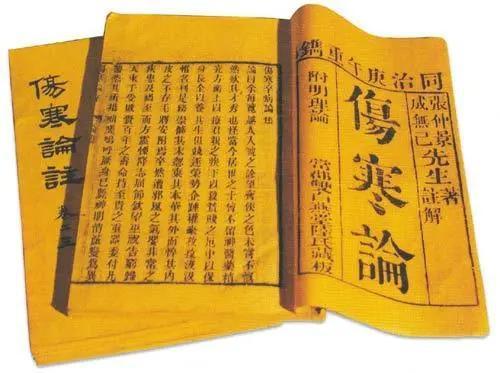 同治庚午年重鐫
張仲景著
成無己先生註解
傷寒論
附明理論
常郡雙白燕堂陸氏藏板
傷寒卒病論集
論曰余每覽越人入虢之診望齊侯之色未嘗不慨
然歎其才秀也怪當今居世之士曾不留神醫藥精
究方術上以療君親之疾下以救貧賤之厄中以保
身長全以養其生但競逐榮勢企踵權豪孜孜汲汲
惟名利是務崇飾其末忽棄其本華其外而悴其內
皮之不存毛將安附焉卒然遭邪風之氣嬰非常之
疾患及禍至而方震慄降志屈節欽望巫祝告窮歸
天束手受敗賚百年之壽命持至貴之重器委付凡
醫恣其所措咄嗟嗚呼厥身已斃神明消滅變為異
傷寒論註